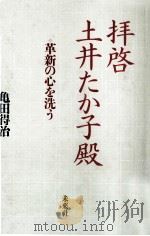 拝啓
土井たか子殿
革新の心を洗う
亀田得治